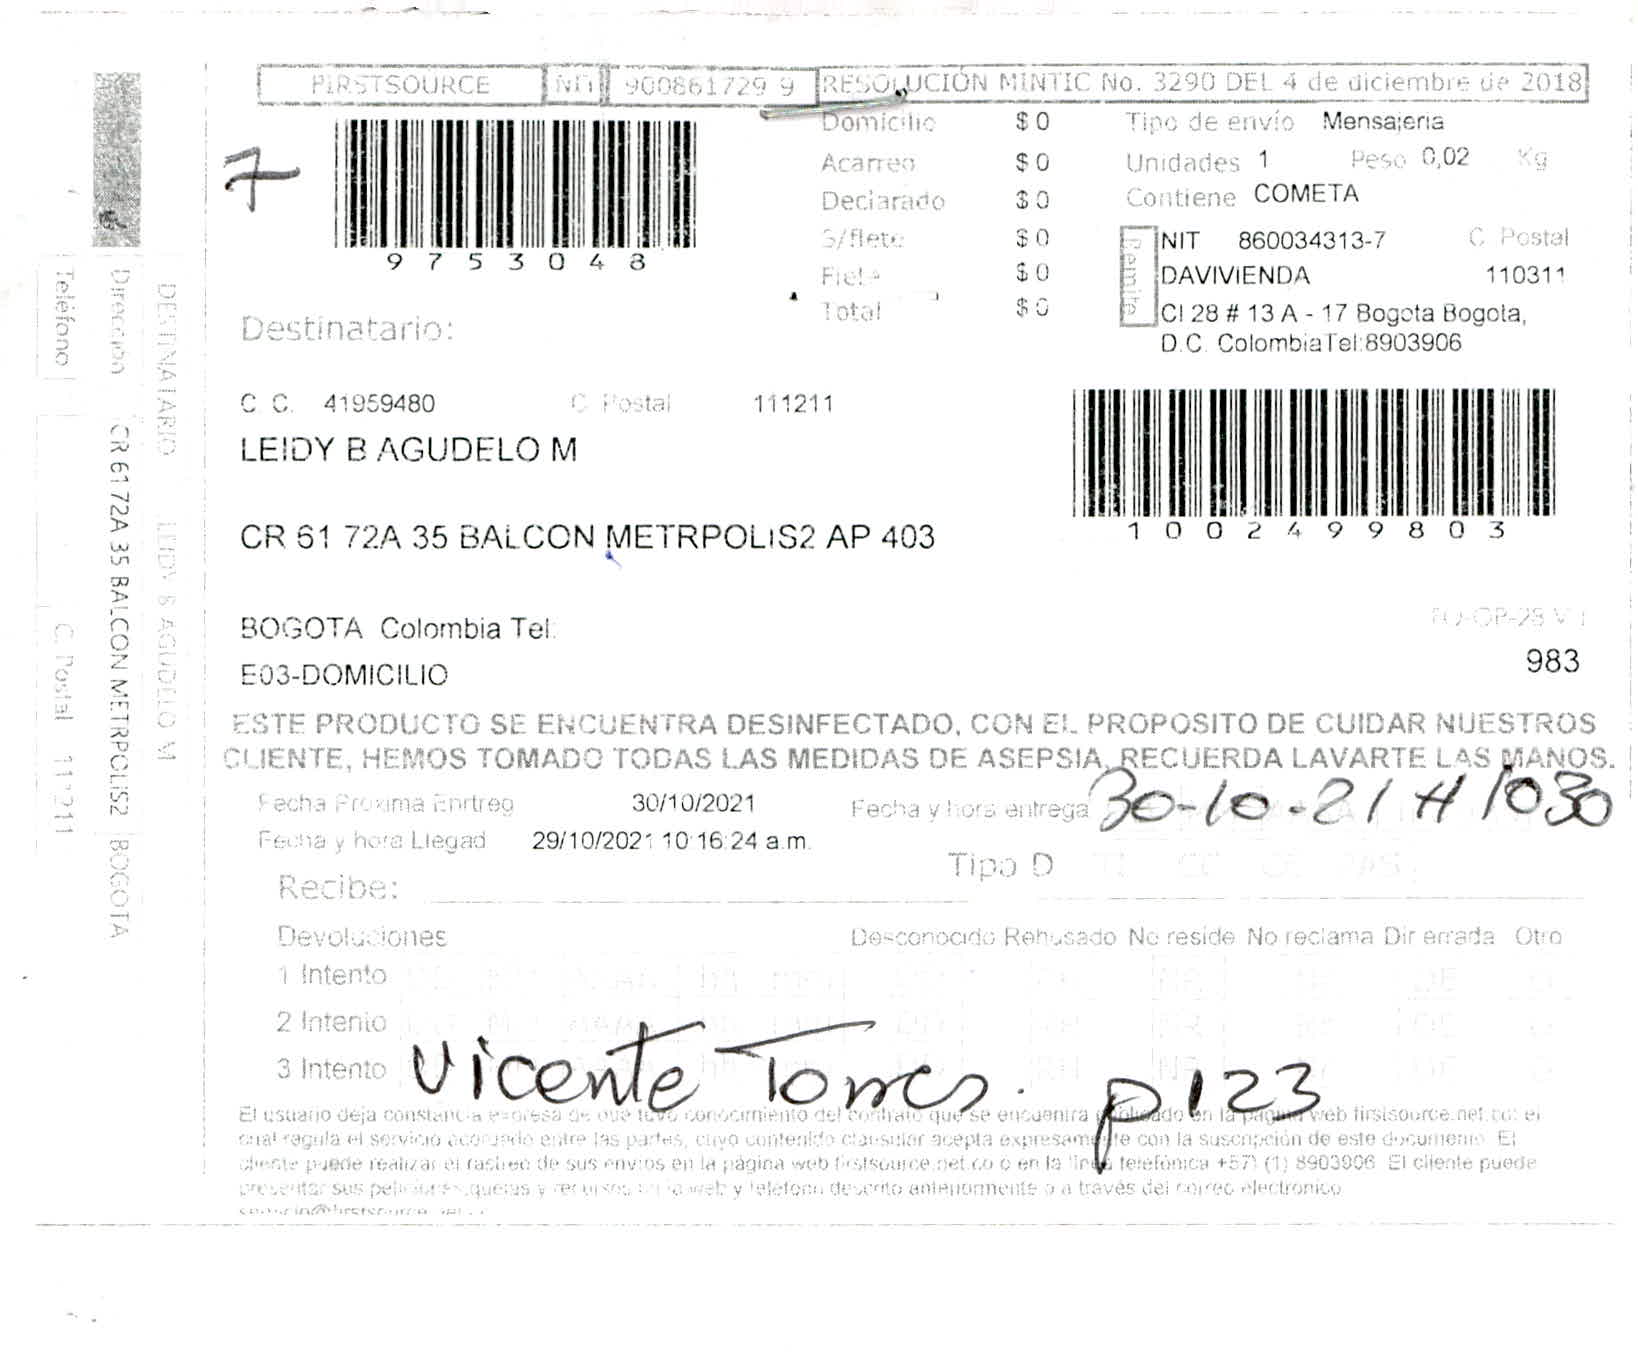 FIRSTSOURCE NIT 900861729 9 RESOLUCIÓN MINTIC No. 3290 DEL 4 de diciembre de 2018
7
9753048
Domicilio $ 0
Acarreo $ 0
Declarado $ 0
S/flete $ 0
Flete $ 0
Total $ 0
Tipo de envío Mensajeria
Unidades 1 Peso 0,02 Kg
Contiene COMETA
Remite
NIT 860034313-7 C. Postal
DAVIVIENDA 110311
Cl 28 # 13 A - 17 Bogota Bogota,
D.C. ColombiaTel:8903906
Destinatario:
C. C. 41959480 C. Postal 111211
LEIDY B AGUDELO M
10024999803
CR 61 72A 35 BALCON METRPOLIS2 AP 403
BOGOTA Colombia Tel:
E03-DOMICILIO
983
ESTE PRODUCTO SE ENCUENTRA DESINFECTADO, CON EL PROPOSITO DE CUIDAR NUESTROS
CLIENTE, HEMOS TOMADO TODAS LAS MEDIDAS DE ASEPSIA, RECUERDA LAVARTE LAS MANOS.
Fecha Proxima Enrtreg 30/10/2021 Fecha y hora entrega 30-10-21 H 1030
Fecha y hora Llegad 29/10/2021 10:16:24 a.m.
Tipo D
Recibe:
Devoluciones Desconocido Rehusado No reside No reclama Dir errada Otro
1 Intento
2 Intento
3 Intento
Vicente Torres. p123
El usuario deja constancia expresa de que tuvo conocimiento del contrato que se encuentra publicado en la pagina web firstsource.net.co: el
cual regula el servicio acordado entre las partes, cuyo contenido clausular acepta expresamente con la suscripción de este documento. El
cliente puede realizar el rastreo de sus envios en la página web firstsource.net.co o en la linea telefónica +57) (1) 8903906 El cliente puede
presentar sus peticiones, quejas y recursos en la web y teléfono descrito anteriormente o a través del correo electronico
DESTINATARIO LEIDY B AGUDELO M
Dirección CR 61 72A 35 BALCON METRPOLIS2 BOGOTA
Teléfono C. Postal 111211